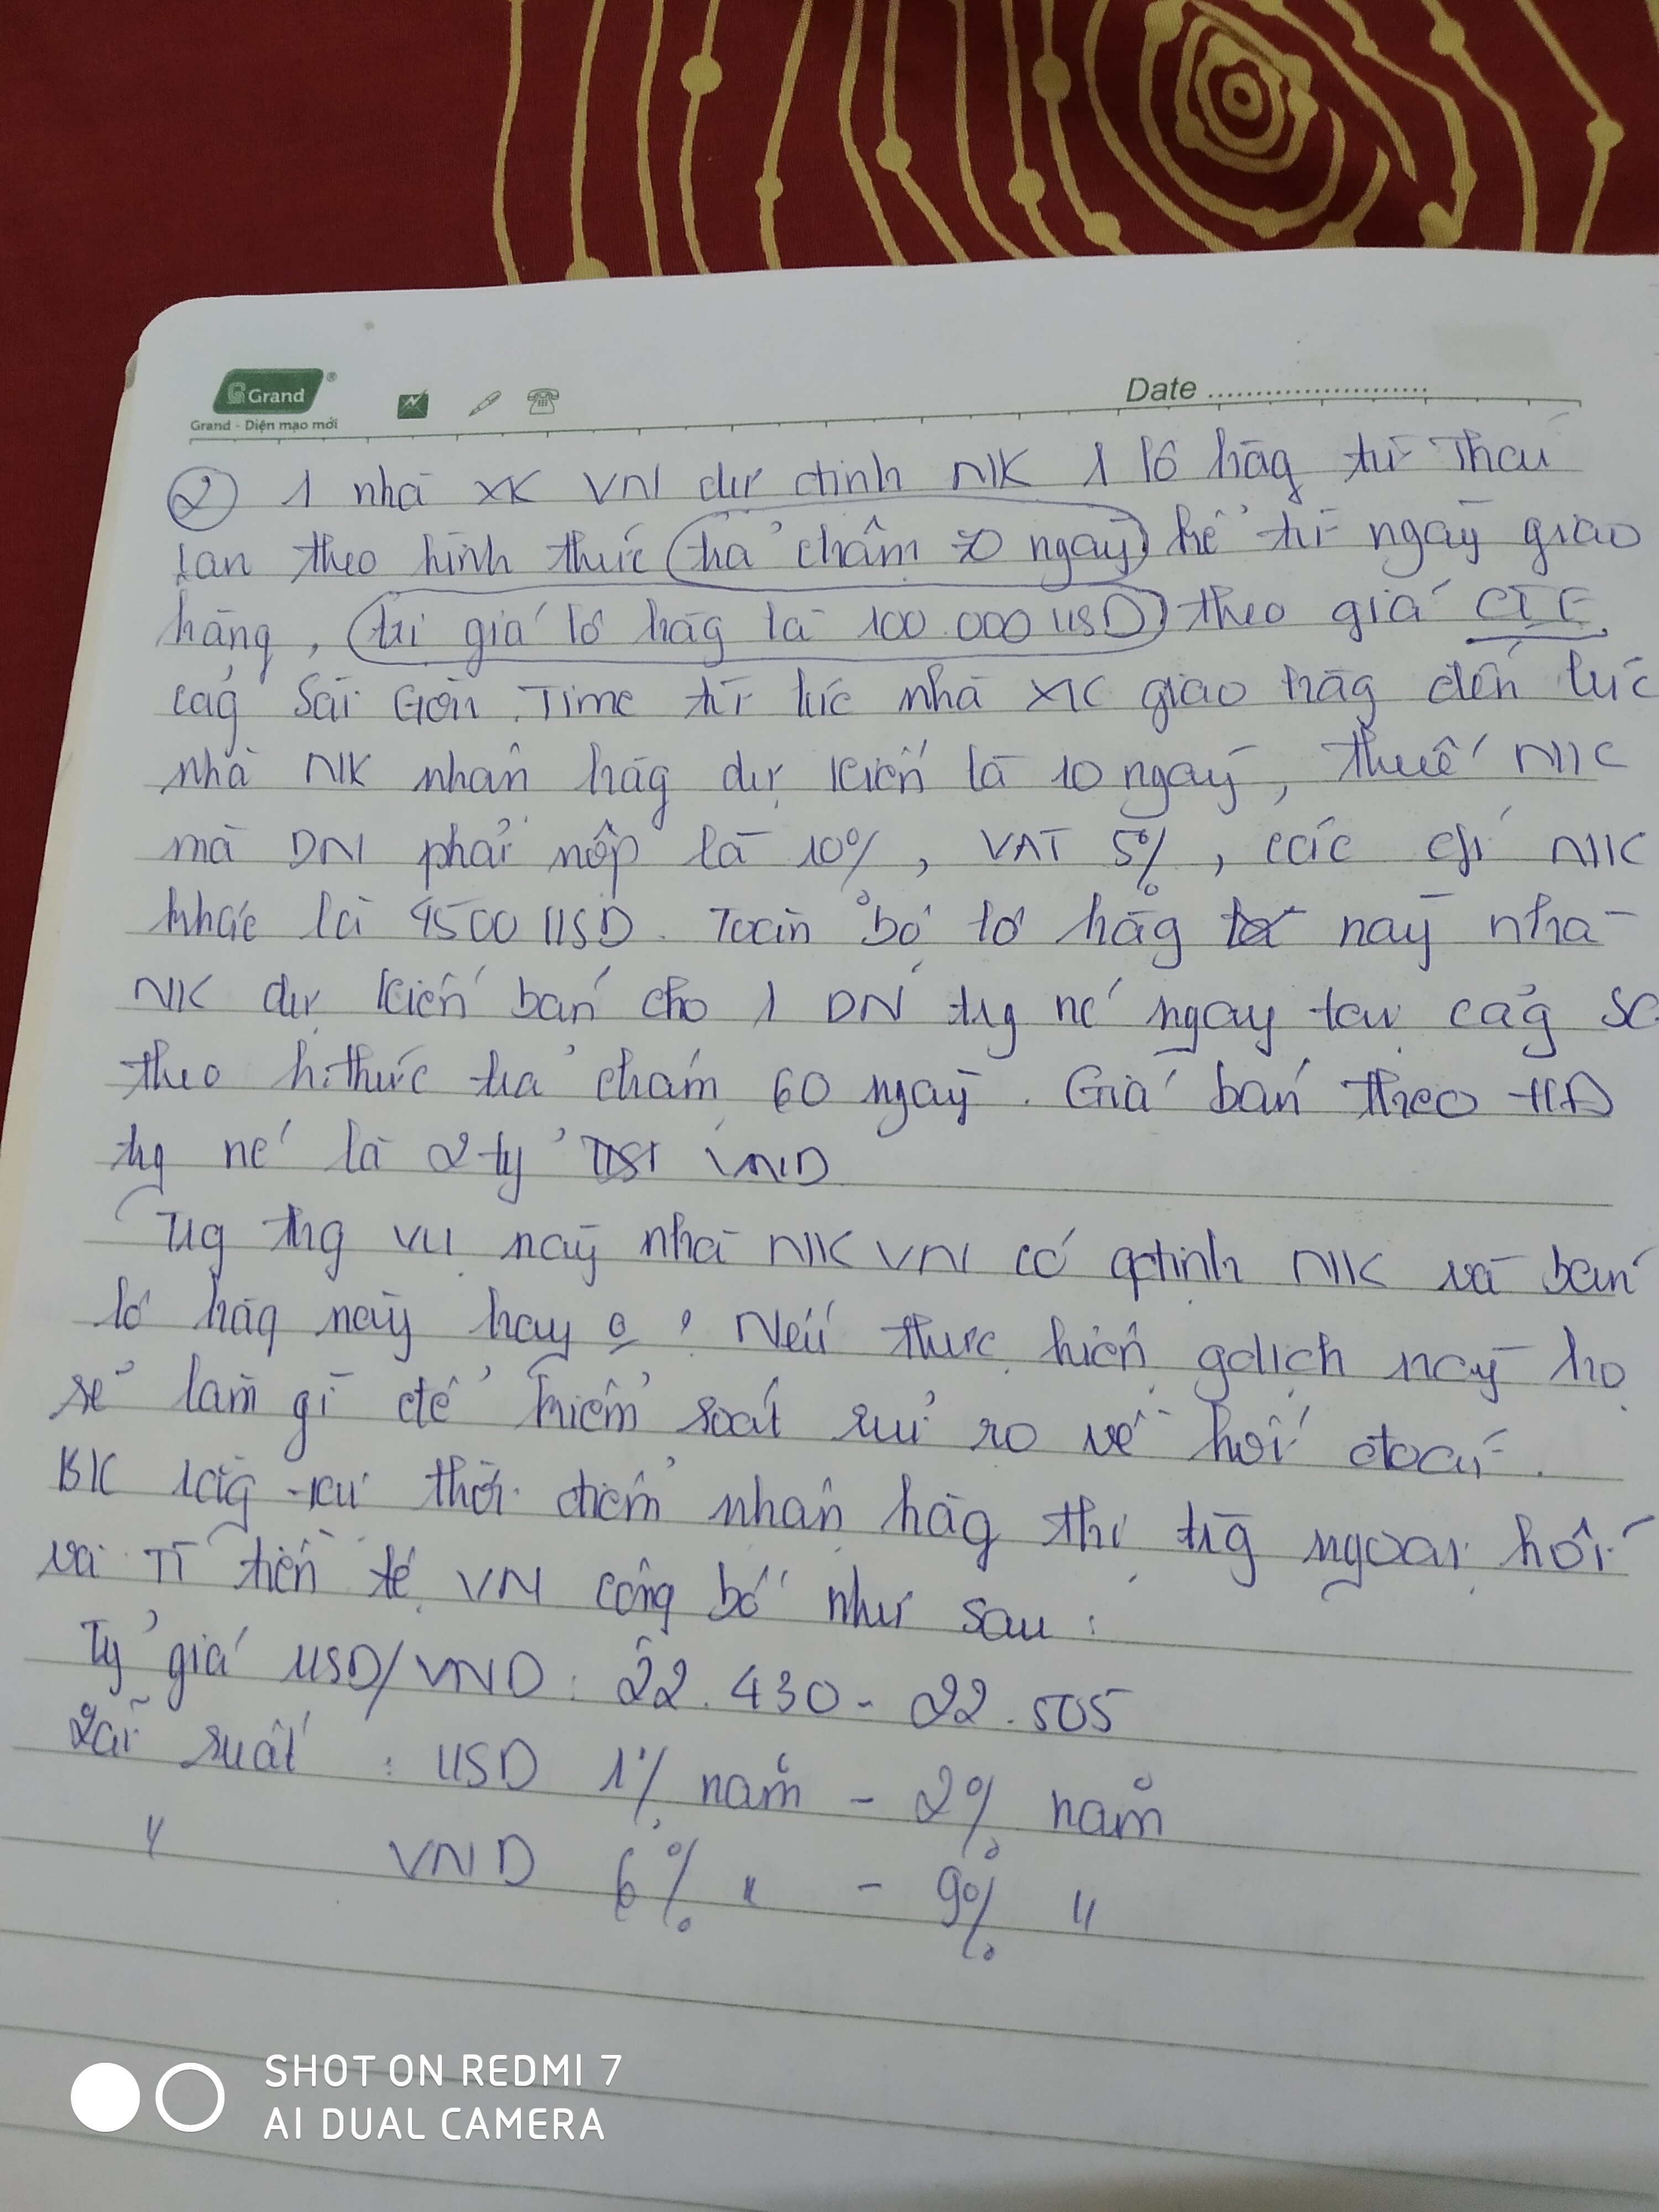 Grand
Grand - Diện mạo mới
Date
② 1 nhà XK VN dự định NK 1 lô hàg từ Thái
Lan theo hình thức trả chậm 70 ngày kể từ ngày giao
hàng, trị giá lô hàg là 100.000 USD theo giá CIF
cảg Sài Gòn. Time từ lúc nhà XK giao hàg đến lúc
nhà NK nhận hàg dự kiến là 10 ngày, thuế NK
mà DN phải nộp là 10%, VAT 5%, các chi NK
khác là 4500 USD. Toàn bộ lô hàg này nhà
NK dự kiến bán cho 1 DN trg nc ngay tại cảg SG
theo h.thức trả chậm 60 ngày. Giá bán theo HĐ
trg nc là 2 tỷ VND
Trg thg vụ này nhà NK VN có qđịnh NK và bán
lô hàg này hay o? Nếu thực hiện gdịch này họ
sẽ làm gì để kiểm soát rủi ro về hối đoái.
BK rằg tại thời điểm nhận hàg thị trg ngoại hối
và TT tiền tệ VN công bố như sau:
Tỷ giá USD/VND: 22.430 - 22.505
Lãi suất : USD 1% năm - 2% năm
" VND 6% " - 9% "
SHOT ON REDMI 7
AI DUAL CAMERA